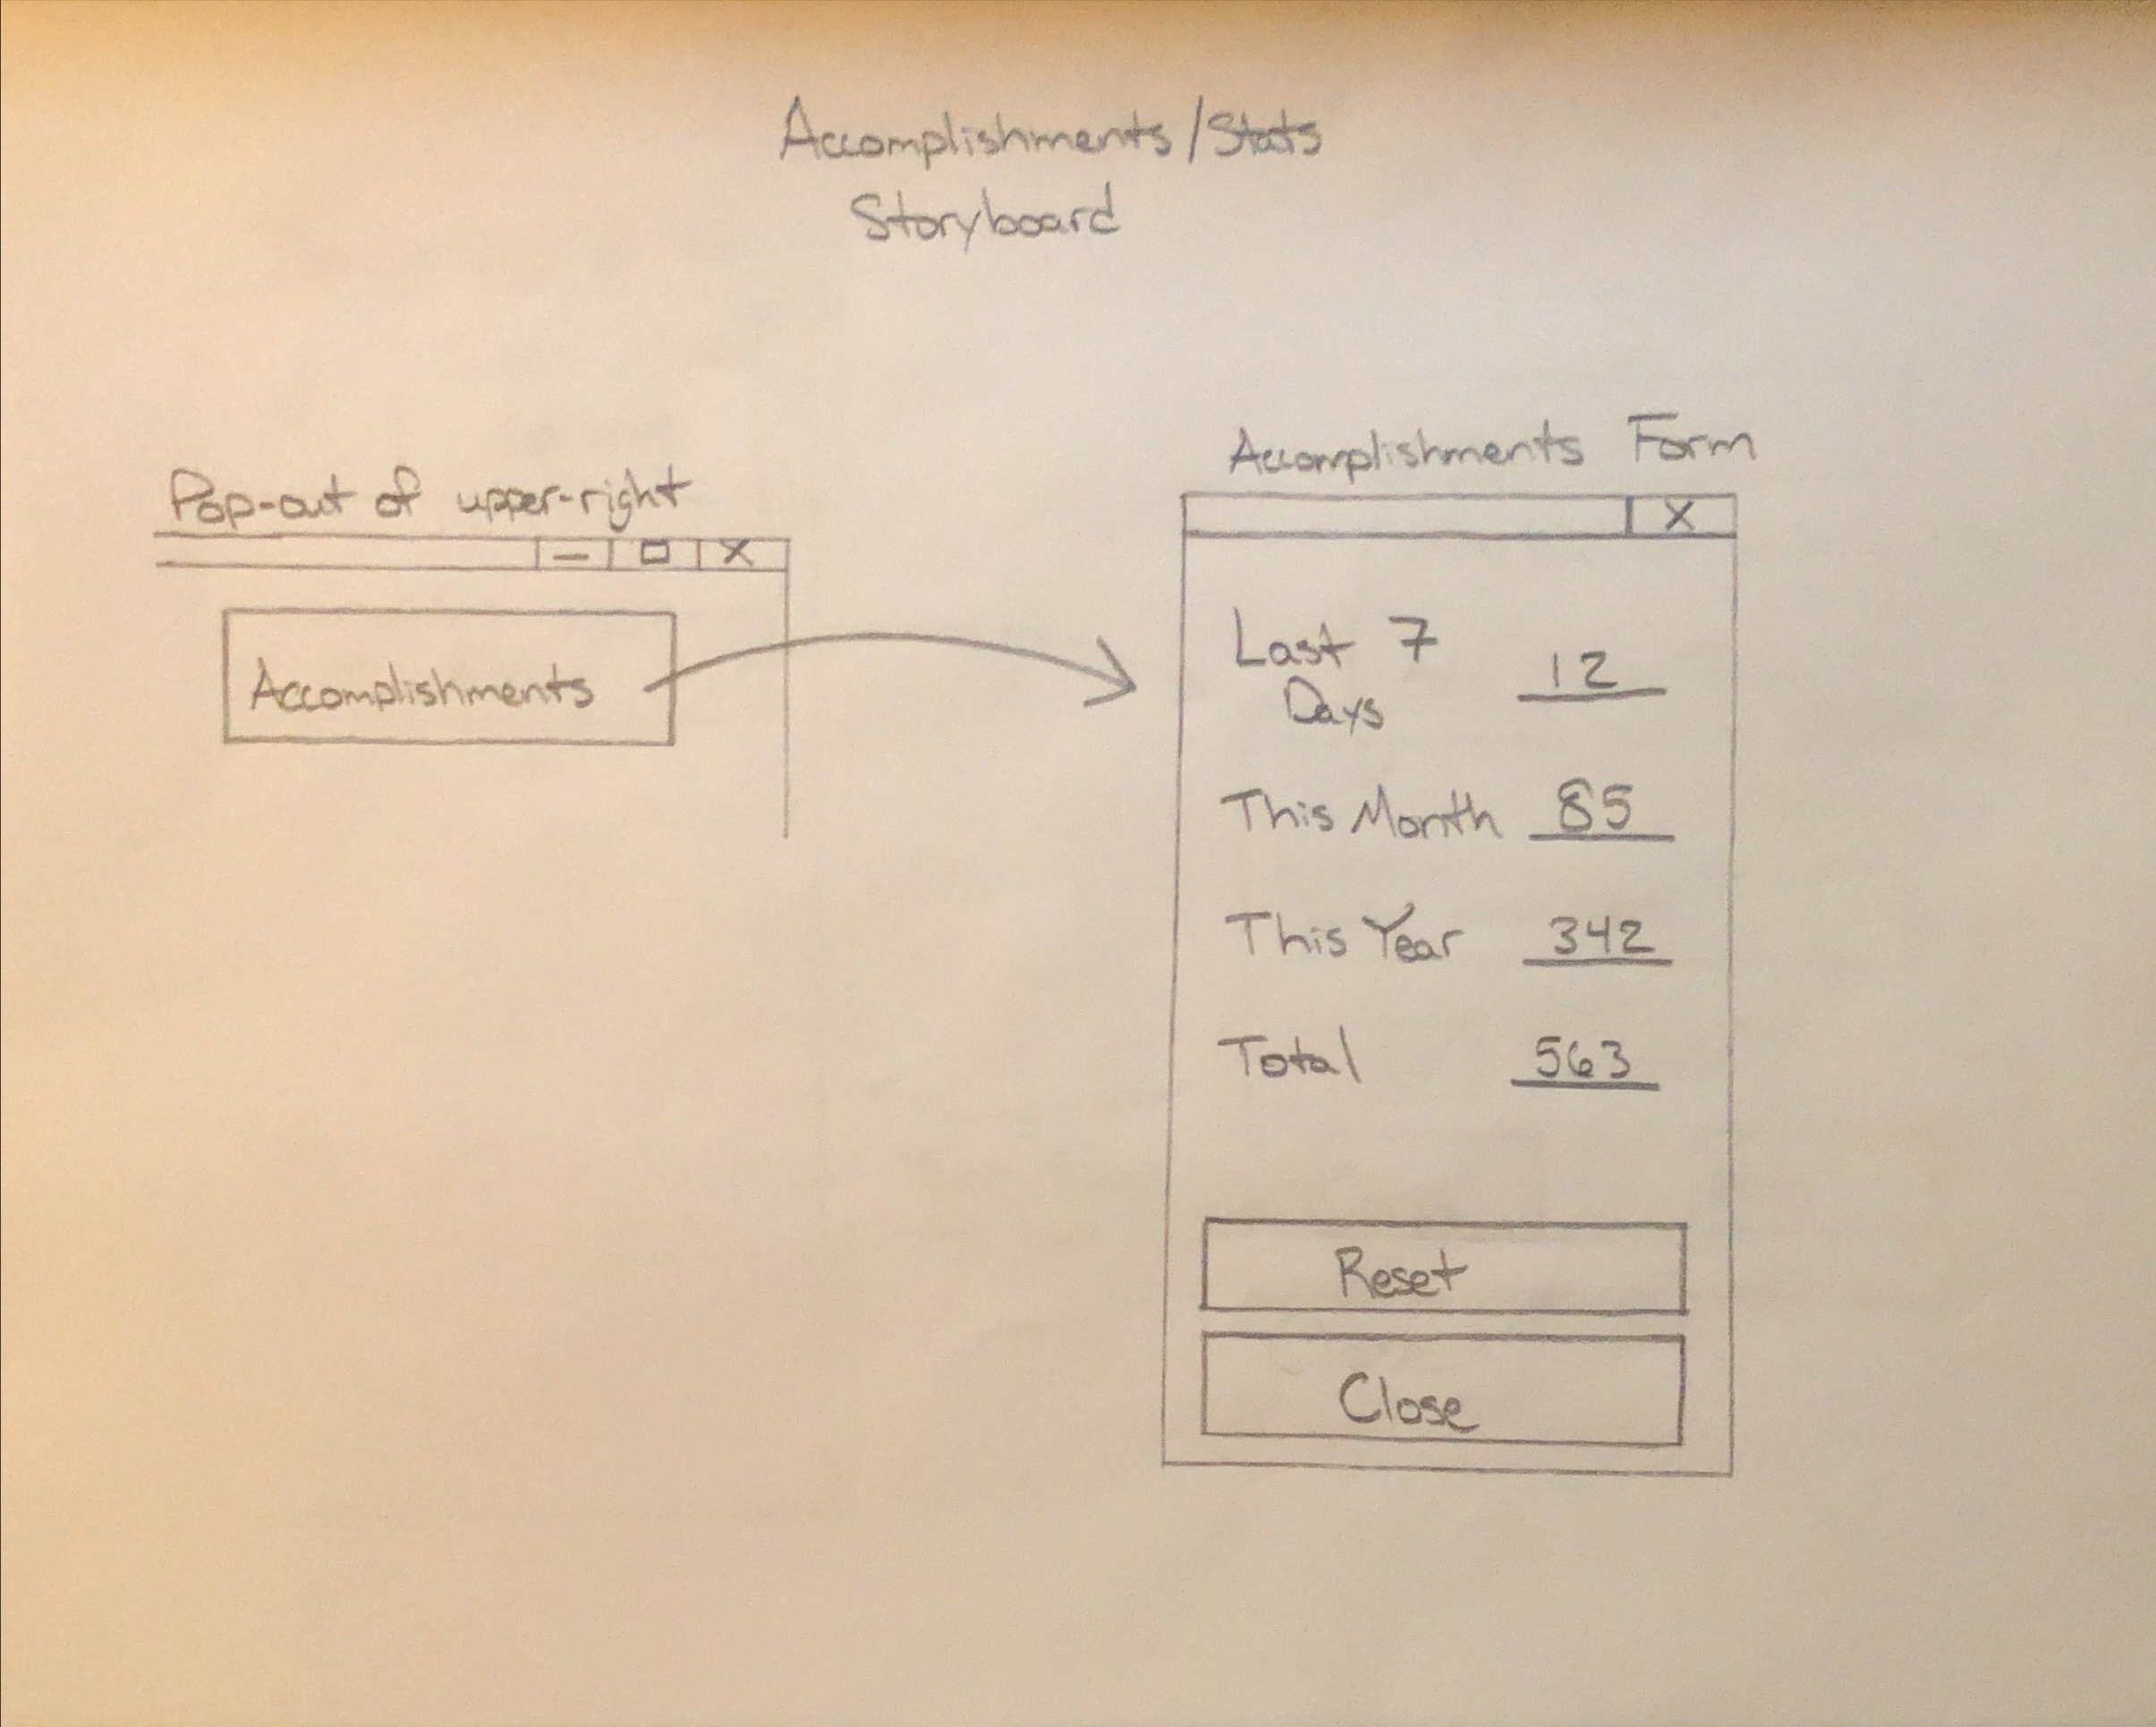 Accomplishments/Stats
Storyboard
Pop-out of upper-right
X
Accomplishments
Accomplishments Form
X
Last 7
Days 12
This Month 85
This Year 342
Total 563
Reset
Close